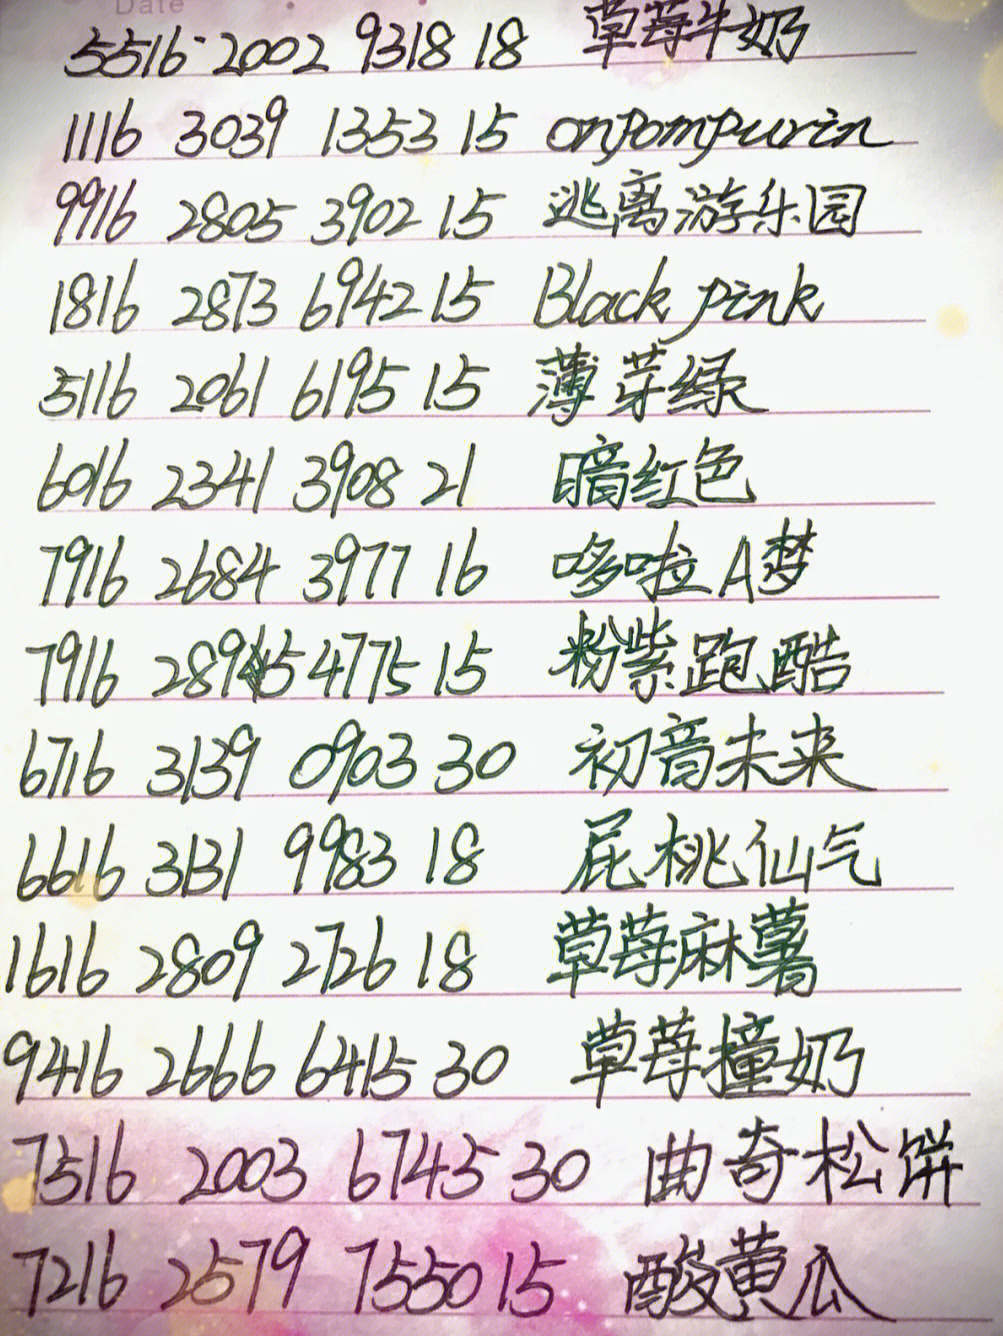 Date
5516 2002 9318 18 草莓牛奶
1116 3039 1353 15 onpompurin
9916 2805 3902 15 逃离游乐园
1816 2873 6942 15 Black pink
5116 2061 6195 15 薄芽绿
6016 2341 3908 21 暗红色
7916 2684 3977 16 哆啦A梦
7916 2895 4775 15 粉紫跑酷
6716 3139 0903 30 初音未来
6616 3131 9983 18 屁桃仙气
1616 2809 2726 18 草莓麻薯
9416 2666 6415 30 草莓撞奶
7516 2003 6745 30 曲奇松饼
7216 2579 7550 15 酸黄瓜